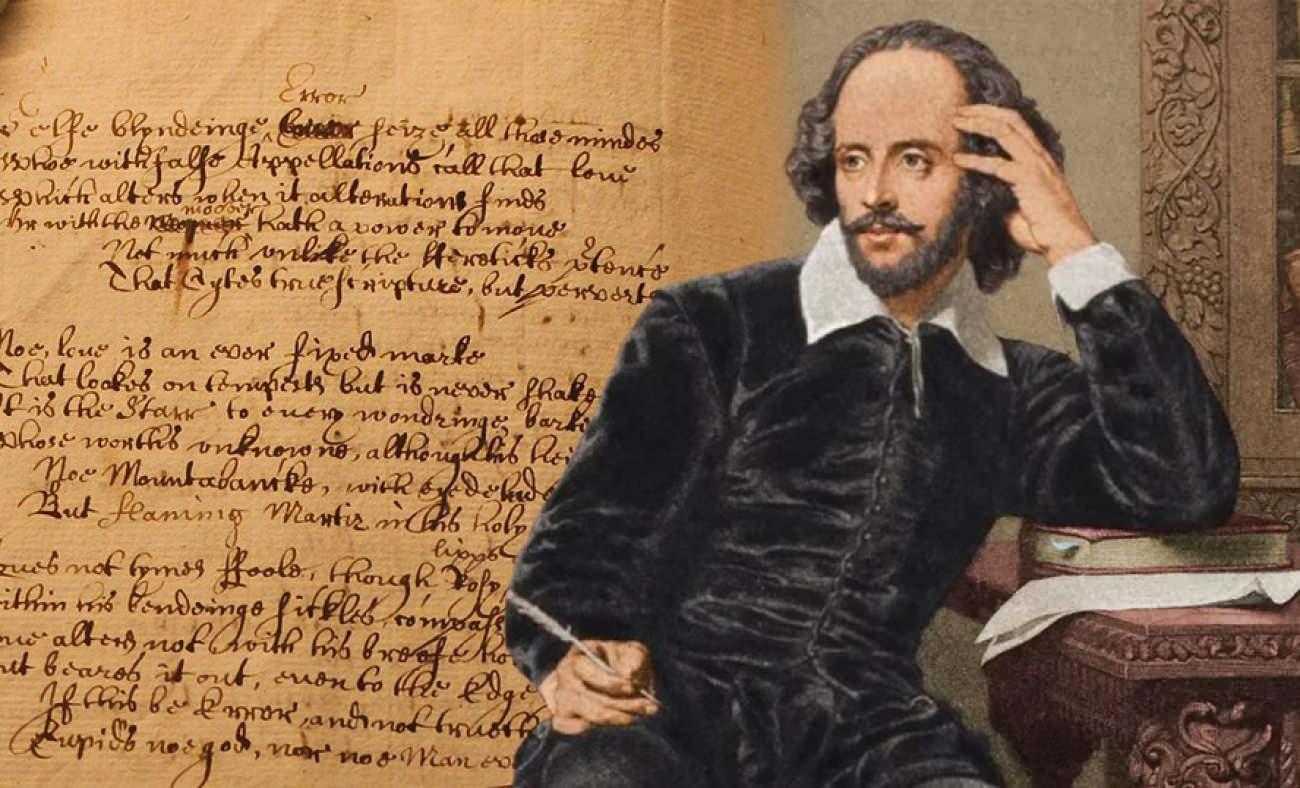 Error
else blyndeinge seize all those mindes
Whoe with falce Appellations call that love
Which alters when it alterations finds
Or with the mover hath a power to move
Not much unlike the Hereticks p̃tence
That Cytes true scripture, but pervert
Noe, love is an ever fixed marke
That lookes on tempests but is never shake
It is the Starr to every wondringe barke
Whose worths unknowne, although his hei
Noe Mountabancke, with eie delude
But flaming Martir in his holy
lippes
not tymes Foole, though Rosy
within his bendeinge sickles compass
alters not with his breefe ho
But beares it out, even to the Edge
If this be Error, and not trueth
Cupids noe god, nor noe Man ev